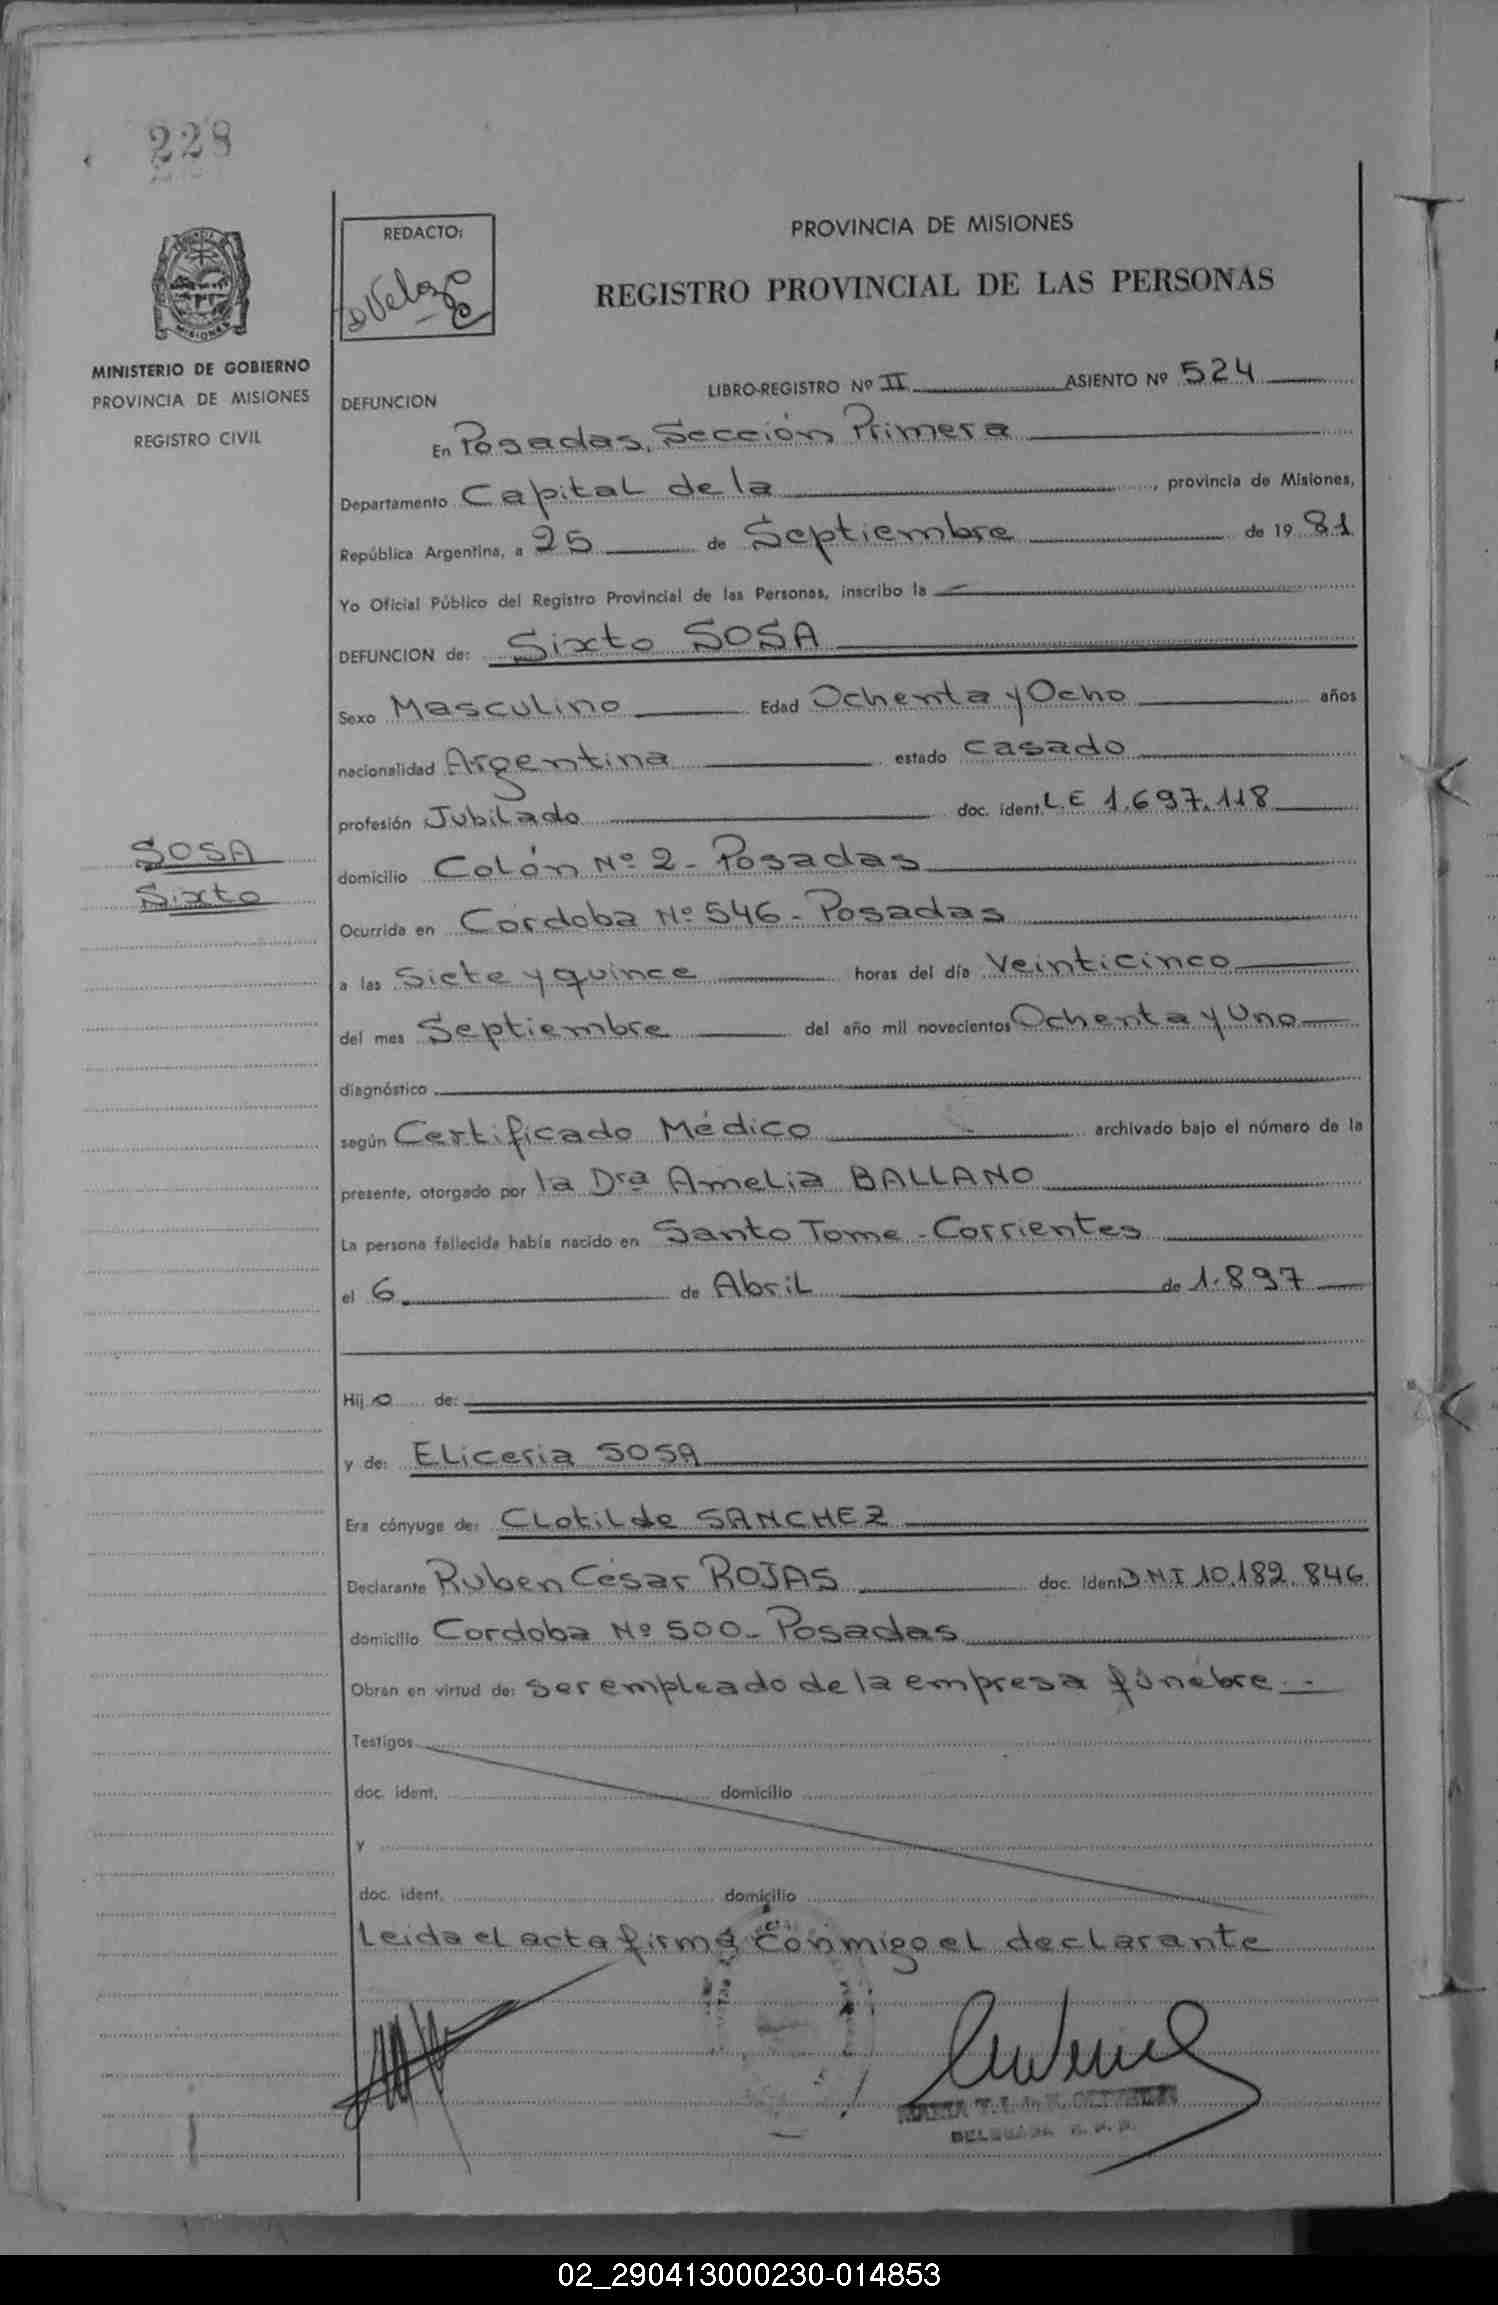 228
MINISTERIO DE GOBIERNO
PROVINCIA DE MISIONES
REGISTRO CIVIL
SOSA
Sixto
REDACTO:
PROVINCIA DE MISIONES
REGISTRO PROVINCIAL DE LAS PERSONAS
LIBRO-REGISTRO Nº II ASIENTO Nº 524
DEFUNCION
En Posadas, Sección Primera
Departamento Capital de la, provincia de Misiones,
República Argentina, a 25 de Septiembre de 1981
Yo Oficial Público del Registro Provincial de las Personas, inscribo la
DEFUNCION de: Sixto SOSA
Sexo Masculino Edad Ochenta y Ocho años
nacionalidad Argentina estado casado
profesión Jubilado doc. ident. L.E 1.697.118
domicilio Colón Nº 2 - Posadas
Ocurrida en Córdoba Nº 546 - Posadas
a las Siete y quince horas del día Veinticinco
del mes Septiembre del año mil novecientos Ochenta y Uno
diagnóstico
según Certificado Médico archivado bajo el número de la
presente, otorgado por la Dra Amelia BALLANO
La persona fallecida había nacido en Santo Tome - Corrientes
el 6 de Abril de 1.897
Hijo de:
y de: Eliceria SOSA
Era cónyuge de: Clotilde SANCHEZ
Declarante Ruben César ROJAS doc. ident DNI 10.182.846
domicilio Cordoba Nº 500 - Posadas
Obran en virtud de: Ser empleado de la empresa fúnebre
Testigos
doc. ident. domicilio
y
doc. ident. domicilio
Leída el acta firma conmigo el declarante
MARIA
02_290413000230-014853